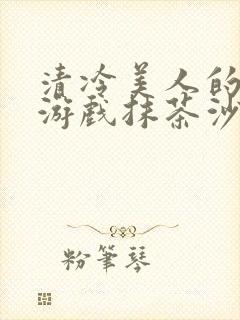 清冷美人的
游戏抹茶沙
粉筆琴